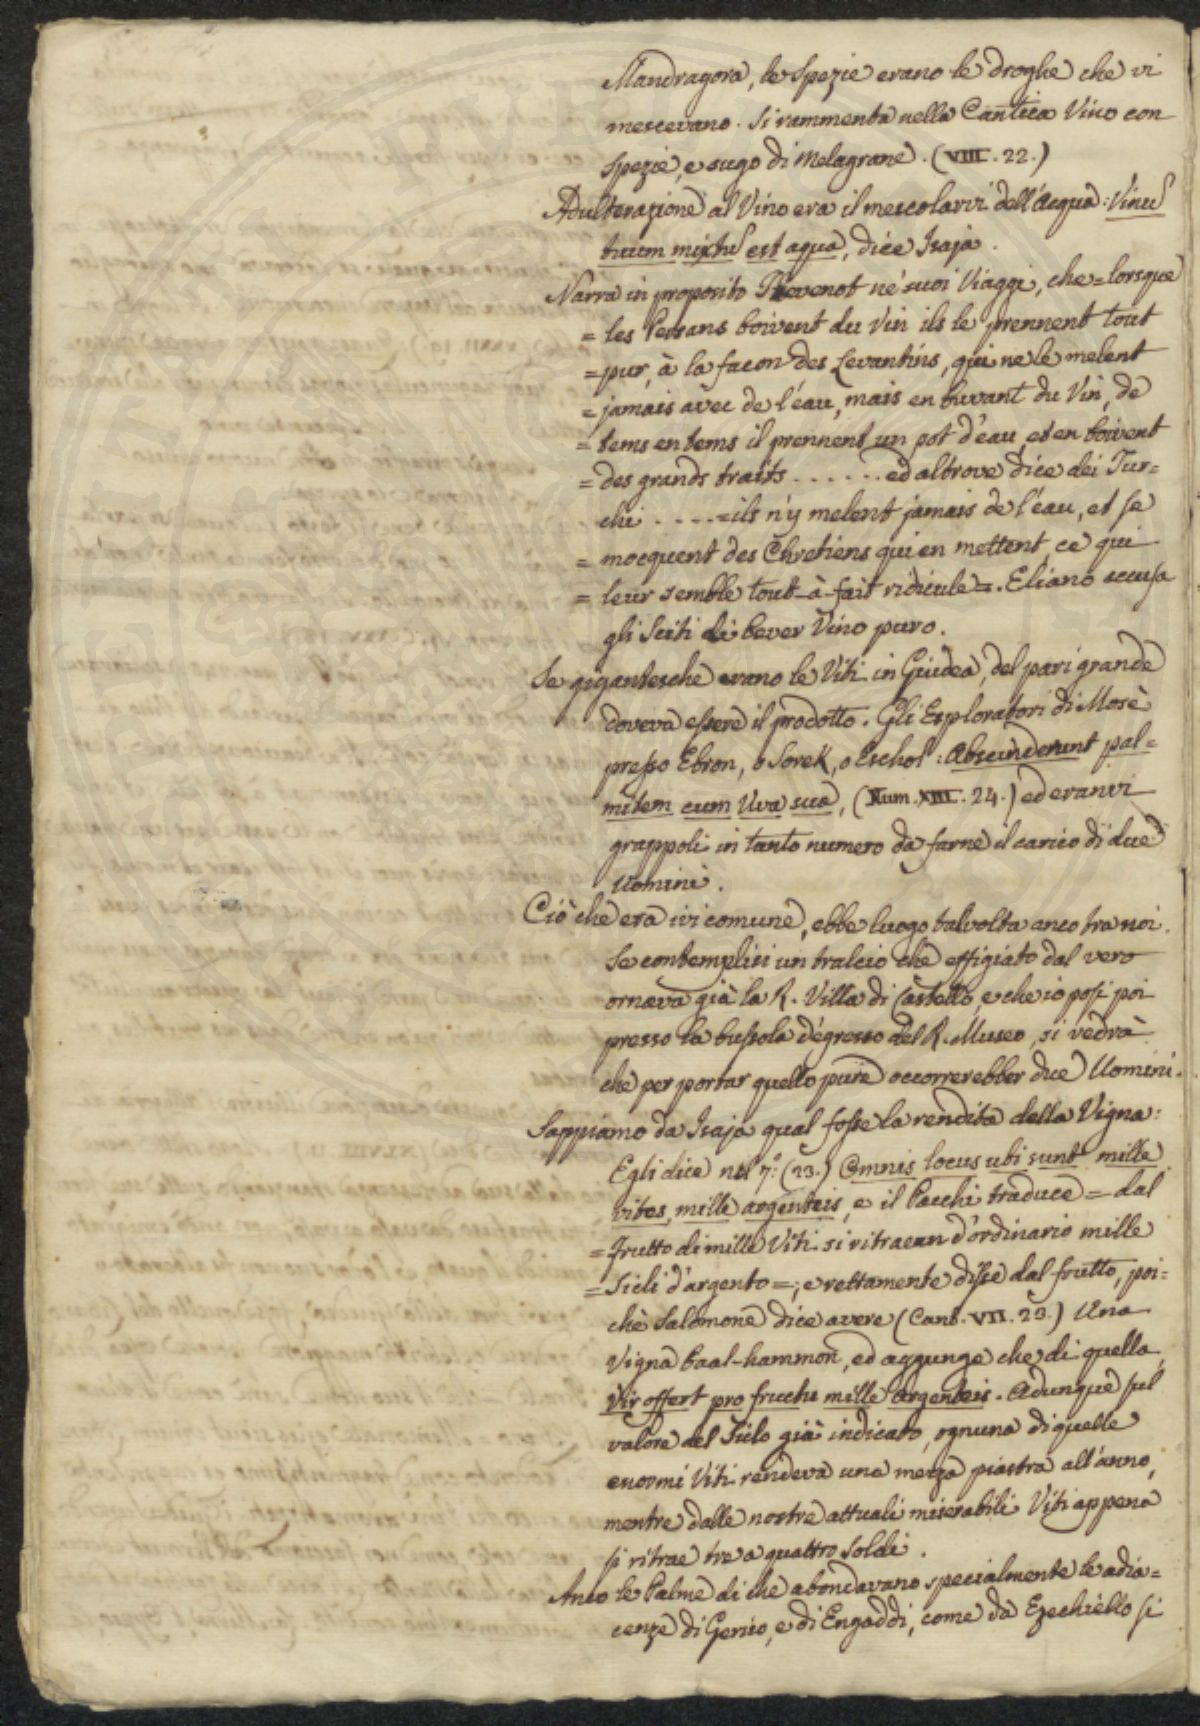 Mandragora, le Spezie erano le droghe che vi
mescevano. Si rammenta nella Cantica Vino con
spezie, e sugo di Melagrane. (VIII. 22.)
Adulterazione al Vino era il mescolarvi dell'Acqua: Vinu
tuum mixtu est aqua, dice Isaja.
Narra in proposito Thevenot ne' suoi Viaggi, che = lorsque
= les Persans boivent du Vin ils le prennent tout
= pur, à la facon des Levantins, qui ne le melent
= jamais avec de l'éau, mais en buvant du Vin, de
= tems en tems il prennent un pot d'eau, et en boivent
= des grands traits ...... ed altrove dice dei Tur=
chi .... = ils n'y melent jamais de l'éau, et se
= mocquent des Chretiens qui en mettent, ce qui
= leur semble tout-à-fait ridicule =. Eliano accusa
gli Sciti di bever Vino puro.
Se gigantesche erano le Viti in Giudea, del pari grande
doveva essere il prodotto. Gli Esploratori di Mosè
presso Ebron, o Sorek, o Eschol: Absciderunt pal=
mitem cum Uva sua, (Num. XIII. 24.) ed eranvi
grappoli in tanto numero da farne il carico di due
Uomini.
Ciò che era ivi comune, ebbe luogo talvolta anco tra noi.
Se contemplisi un tralcio che effigiato dal vero
ornava già la R. Villa di Castello, e che io posi poi
presso la bussola d'egresso del R. Museo, si vedrà
che per portar quello pure occorrerebber due Uomini.
Sappiamo da Isaja qual fosse la rendita della Vigna:
Egli dice nel 7.º (23.) Omnis locus ubi sunt mille
vites, mille argenteis, e il Pacchi traduce = dal
= frutto di mille Viti si ritraean d'ordinario mille
= Sicli d'argento =; e rettamente disse dal frutto, poi=
chè Salomone dice avere (Cant. VII. 23.) Una
Vigna baal-hammon, ed aggunge che di quella,
Vir offert pro fructu mille argenteis. Adunque sul
valore del Siclo già indicato, ognuna di quelle
enormi Viti rendeva una mezza piastra all'anno,
mentre dalle nostre attuali miserabili Viti appena
si ritrae tre a quattro Soldi.
Anco le Palme di che abondavano specialmente le adia=
cenze di Gerico, e di Engaddi, come da Ezechiello si